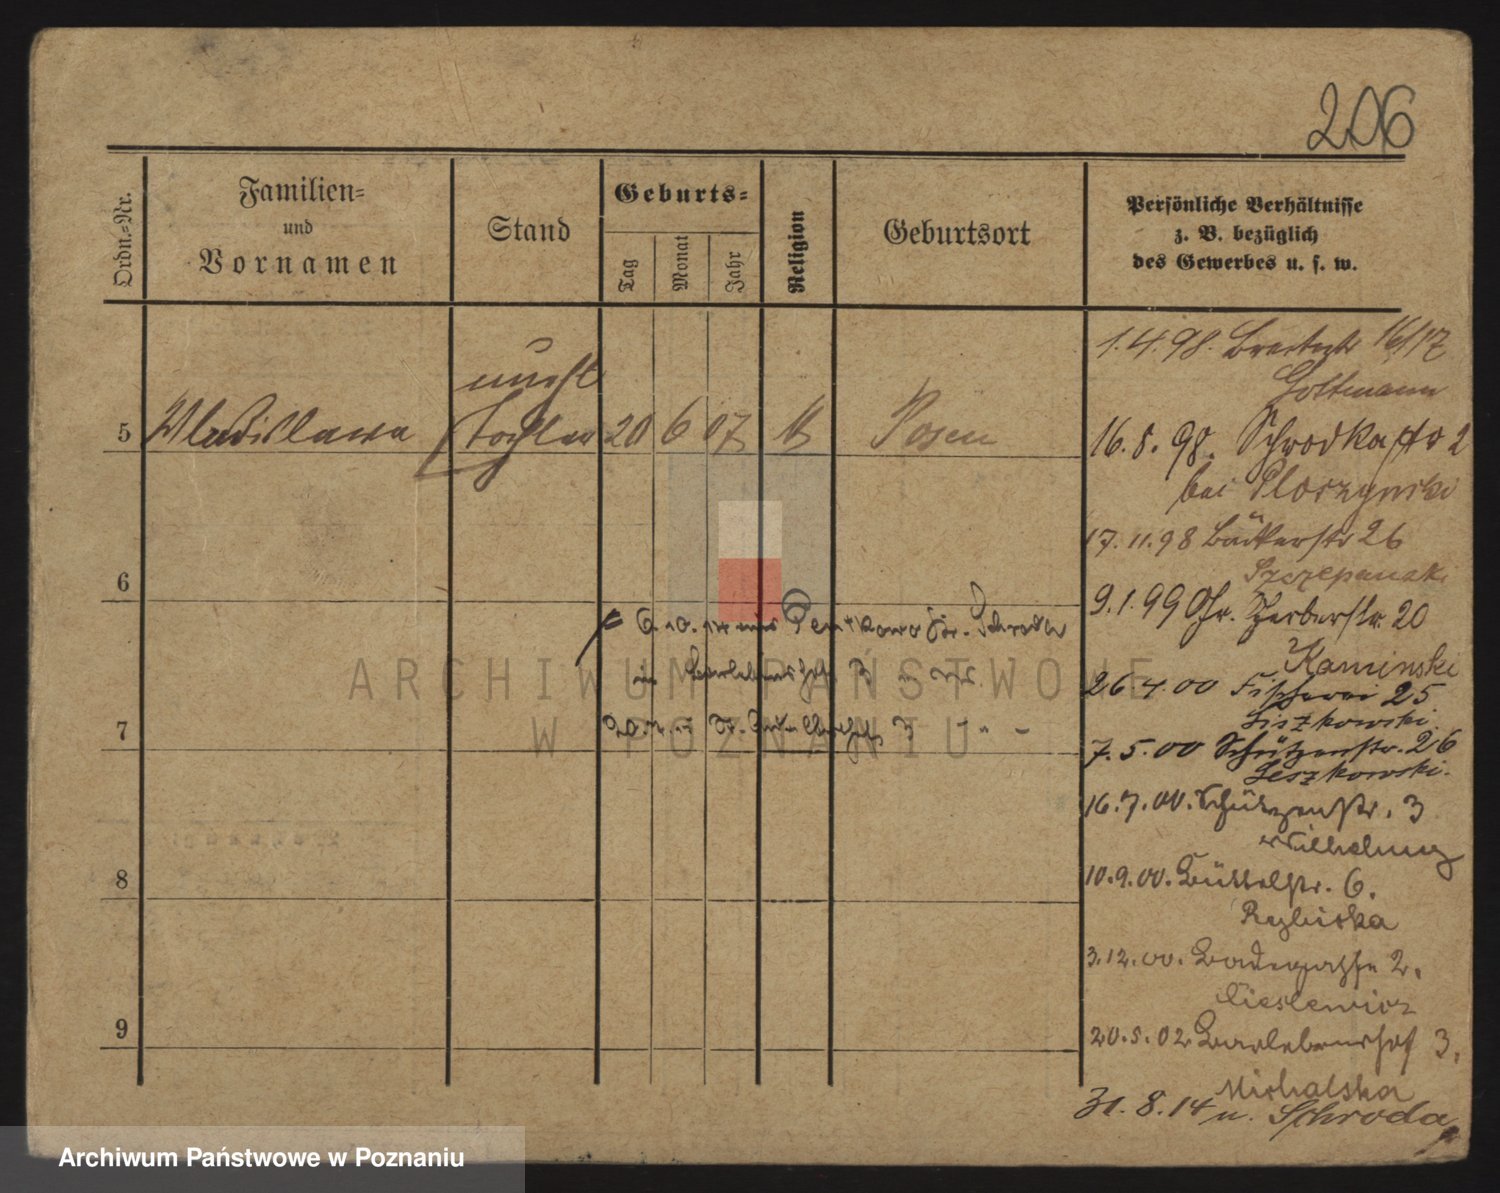 206
Ordn.=Nr.
Familien=
und
Vornamen
Stand
Geburts=
Tag
Monat
Jahr
Religion
Geburtsort
Persönliche Verhältnisse
z. B. bezüglich
des Gewerbes u. s. w.
1.4.98. Breitestr 16/17
Gottmann
unehl
5 Wladislawa Tochter 20 6 07 Posen
16.8.98. Schrodka 2
bei Ploszynski
17.11.98 Bäckerstr 26
Szczepanski
6
9.1.99 Gr. Gerberstr. 20
Kaminski
6.10.14 aus Pentkowo Kr. Schroda
26 4.00 Fischerei 25
Liszkowski
7
7.5.00 Schützenstr. 26
Leszkowski.
16.7.00. Schützenstr. 3
Wilhelmy
8
10.9.00. Büttelstr. 6.
Rybicka
3.12.00. Badegasse 2.
Cieslewicz
9
20.5.02 Barlebenshof 3.
Michalska
31.8.14 n. Schroda
ARCHIWUM PAŃSTWOWE
W POZNANIU
Archiwum Państwowe w Poznaniu